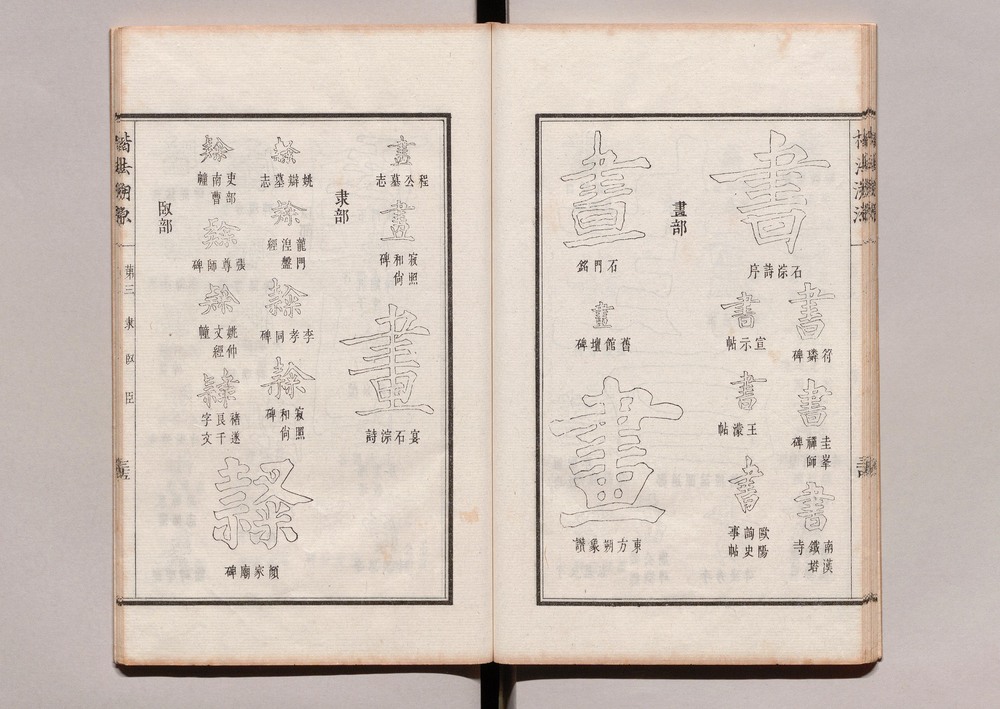 書
石淙詩序
書
符璘碑
書
圭峯禪師碑
書
南漢鐵塔寺
書
宣示帖
書
王濛帖
書
歐陽詢史事帖
畫部
畫
石門銘
畫
舊館壇碑
畫
東方朔象讚
畫
程公墓志
畫
寂照和尙碑
畫
宴石淙詩
隶部
隸
姚辯墓志
隸
龍門涅盤經
隸
李孝同碑
隸
寂照和尙碑
隸
吏部南曹幢
隸
張尊師碑
隸
姚仲文經幢
隸
褚遂良千字文
隸
顏家廟碑
臤部
第三 隶 臤 臣